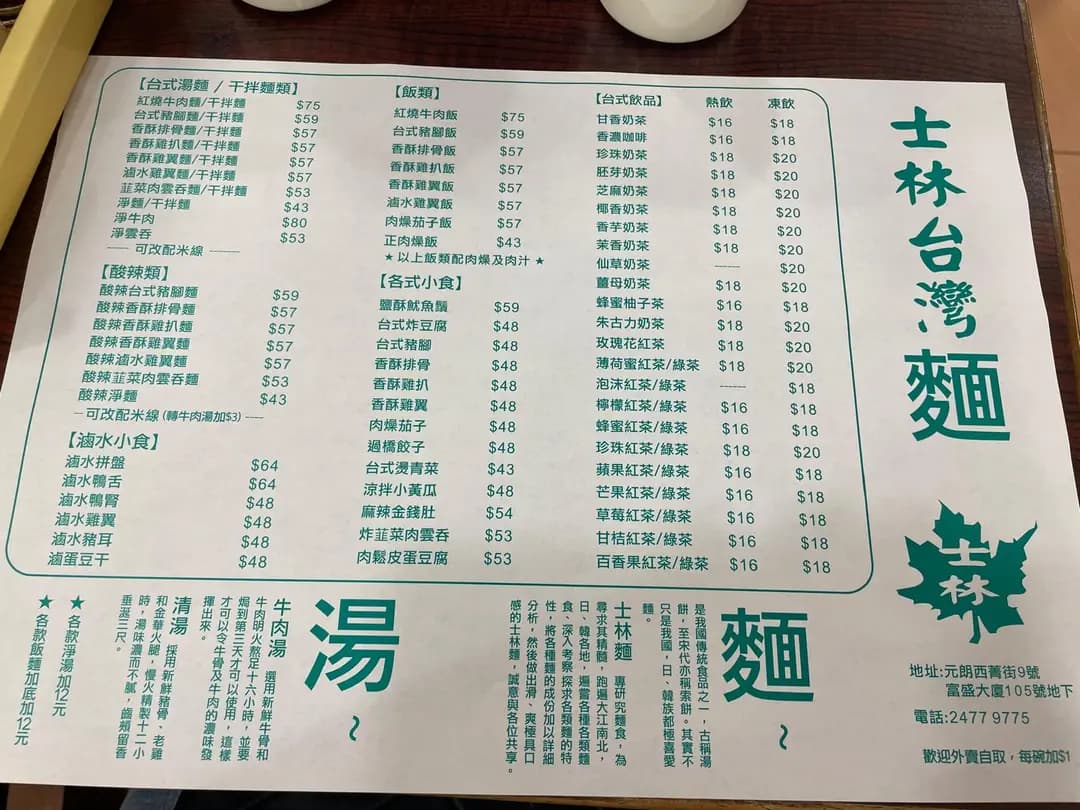 【台式湯麵 / 干拌麵類】
紅燒牛肉麵/干拌麵 $75
台式豬腳麵/干拌麵 $59
香酥排骨麵/干拌麵 $57
香酥雞扒麵/干拌麵 $57
香酥雞翼麵/干拌麵 $57
滷水雞翼麵/干拌麵 $57
韮菜肉雲吞麵/干拌麵 $53
淨麵/干拌麵 $43
淨牛肉 $80
淨雲吞 $53
可改配米線
【酸辣類】
酸辣台式豬腳麵 $59
酸辣香酥排骨麵 $57
酸辣香酥雞扒麵 $57
酸辣香酥雞翼麵 $57
酸辣滷水雞翼麵 $57
酸辣韮菜肉雲吞麵 $53
酸辣淨麵 $43
可改配米線 (轉牛肉湯加$3)
【滷水小食】
滷水拼盤 $64
滷水鴨舌 $64
滷水鴨腎 $48
滷水雞翼 $48
滷水豬耳 $48
滷蛋豆干 $48
【飯類】
紅燒牛肉飯 $75
台式豬腳飯 $59
香酥排骨飯 $57
香酥雞扒飯 $57
香酥雞翼飯 $57
滷水雞翼飯 $57
肉燥茄子飯 $57
正肉燥飯 $43
★以上飯類配肉燥及肉汁★
【各式小食】
鹽酥魷魚鬚 $59
台式炸豆腐 $48
台式豬腳 $48
香酥排骨 $48
香酥雞扒 $48
香酥雞翼 $48
肉燥茄子 $48
過橋餃子 $48
台式燙青菜 $43
涼拌小黃瓜 $48
麻辣金錢肚 $54
炸韮菜肉雲吞 $53
肉鬆皮蛋豆腐 $53
【台式飲品】 熱飲 凍飲
甘香奶茶 $16 $18
香濃咖啡 $16 $18
珍珠奶茶 $18 $20
胚芽奶茶 $18 $20
芝麻奶茶 $18 $20
椰香奶茶 $18 $20
香芋奶茶 $18 $20
茉香奶茶 $18 $20
仙草奶茶 —— $20
薑母奶茶 $18 $20
蜂蜜柚子茶 $16 $18
朱古力奶茶 $18 $20
玫瑰花紅茶 $18 $20
薄荷蜜紅茶/綠茶 $18 $20
泡沫紅茶/綠茶 —— $18
檸檬紅茶/綠茶 $16 $18
蜂蜜紅茶/綠茶 $16 $18
珍珠紅茶/綠茶 $18 $20
蘋果紅茶/綠茶 $16 $18
芒果紅茶/綠茶 $16 $18
草莓紅茶/綠茶 $16 $18
甘桔紅茶/綠茶 $16 $18
百香果紅茶/綠茶 $16 $18
士林台灣麵
士林
地址:元朗西菁街9號
富盛大廈105號地下
電話:2477 9775
歡迎外賣自取，每碗加$1
麵~
是我國傳統食品之一，古稱湯
餅，至宋代亦稱索餅。其實不
只是我國，日、韓族都極喜愛
麵。
士林麵 專研究麵食，為
尋求其精髓，跑遍大江南北，
日、韓各地，遍嘗各種各類麵
食、深入考察探求各類麵的特
性，將各種麵的成份加以詳細
分析，然後做出滑、爽極具口
感的士林麵，誠意與各位共享。
湯~
牛肉湯 選用新鮮牛骨和
牛肉明火熬足十六小時，並要
焗到第三天才可以使用，這樣
才可以令牛骨及牛肉的濃味發
揮出來。
清湯 採用新鮮豬骨、老雞
和金華火腿，慢火精製十二小
時，湯味濃而不膩，齒頰留香
垂涎三尺。
★各款淨湯加12元
★各款飯麵加底加12元